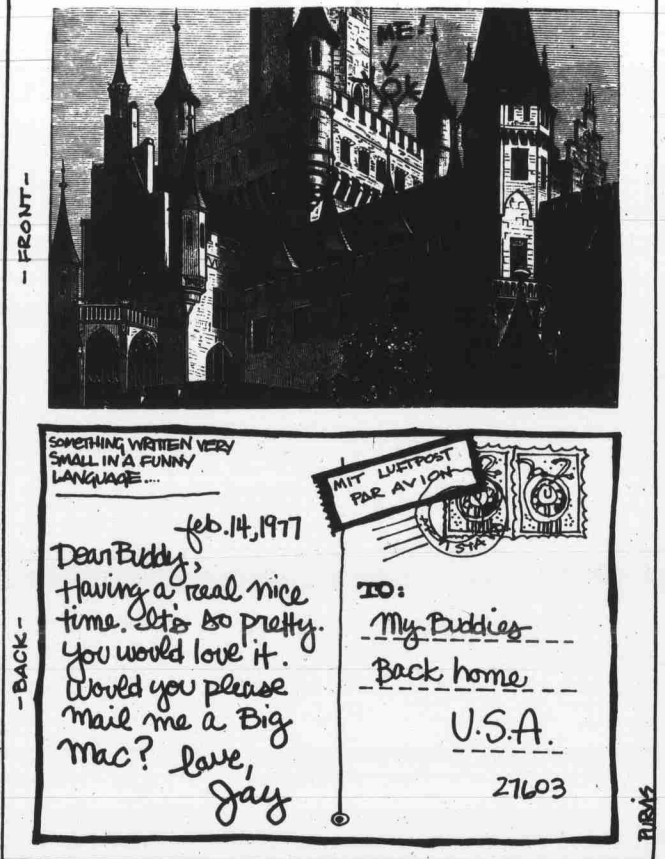 ME!
- FRONT -
SOMETHING WRITTEN VERY
SMALL IN A FUNNY
LANGUAGE....
MIT LUFTPOST
PAR AVION
feb. 14, 1977
Dear Buddy,
Having a real nice
time. It's so pretty.
You would love it.
Would you please
mail me a Big
Mac?
Love,
Jay
TO:
My Buddies
Back home
U.S.A.
27603
- BACK -
PURVIS